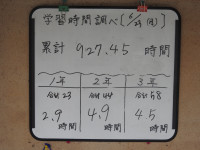 学習時間調べ[6/29(月)]
累計 927.45 時間
1年 2年 3年
合計23 合計44 合計58
2.9 4.9 45
時間 時間 時間